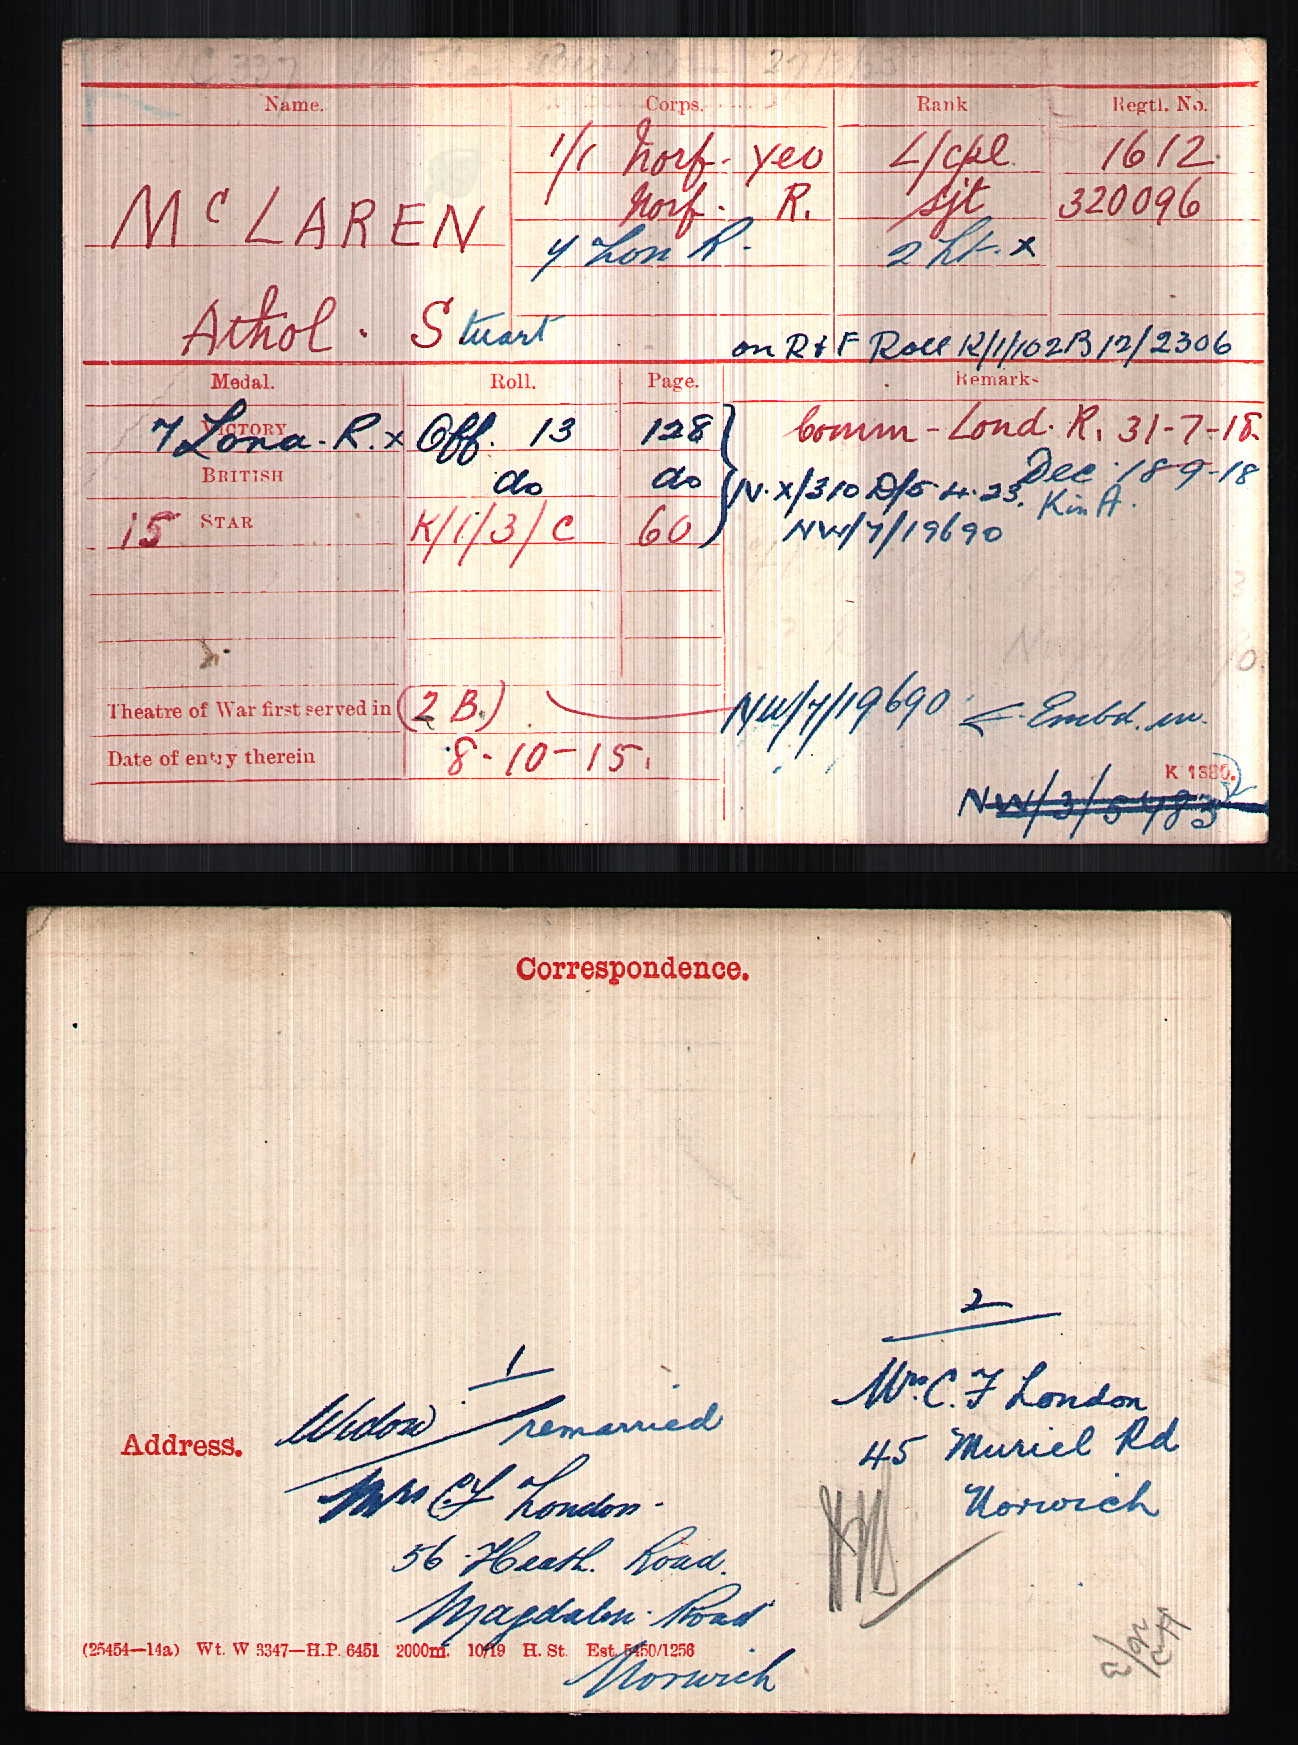 Name. Corps. Rank Regtl. No.
1/1 Norf. Yeo L/Cpl. 1612.
Mc LAREN Norf. R. Sjt 320096
7 Lon R. 2 Lt. x
Athol. Stuart
on R & F Roll K/1/102B12/2306
Medal. Roll. Page. Remarks
VICTORY 7 Lond. R. x Off. 13 128 Comm - Lond. R. 31-7-18.
BRITISH do do Dec 18-9-18
N.X/310 D/5.4.23. K in A.
15 STAR K/1/3/C 60 NW/7/19690
Theatre of War first served in (2 B.) NW/7/19690 Embd. in.
Date of entry therein 8-10-15.
K 1380.
NW/3/5783
Correspondence.
2
1
Mrs. C. F London
Widow remarried
Address.
45 Muriel Rd
Mrs C F London.
Norwich
56 Heath. Road.
Magdalen. Road
(25454—14a) Wt. W 3347—H.P. 6451 2000m. 10/19 H. St. Est. 5450/1256
Norwich